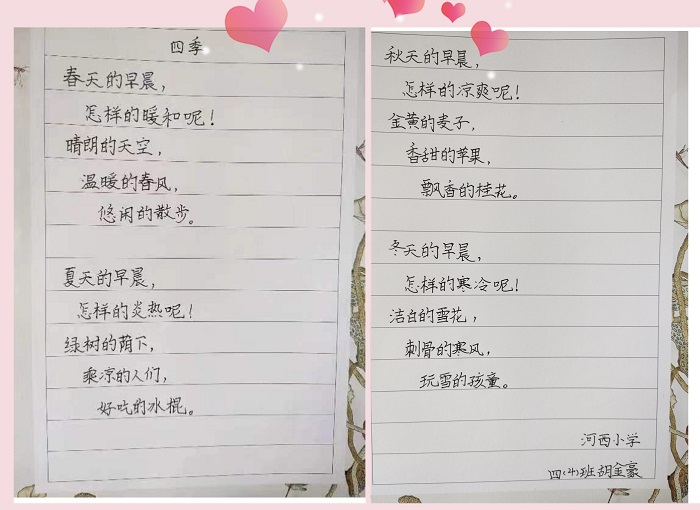 四季
春天的早晨，
怎样的暖和呢！
晴朗的天空，
温暖的春风，
悠闲的散步。
夏天的早晨，
怎样的炎热呢！
绿树的荫下，
乘凉的人们，
好吃的冰棍。
秋天的早晨，
怎样的凉爽呢！
金黄的麦子，
香甜的苹果，
飘香的桂花。
冬天的早晨，
怎样的寒冷呢！
洁白的雪花，
刺骨的寒风，
玩雪的孩童。
河西小学
四（4）班胡金豪